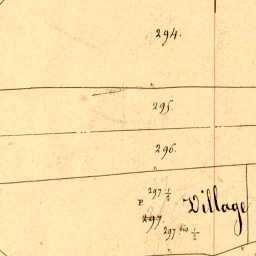 294.
295.
296.
297 1/2
P.
Village
297.
297 bis 1/2